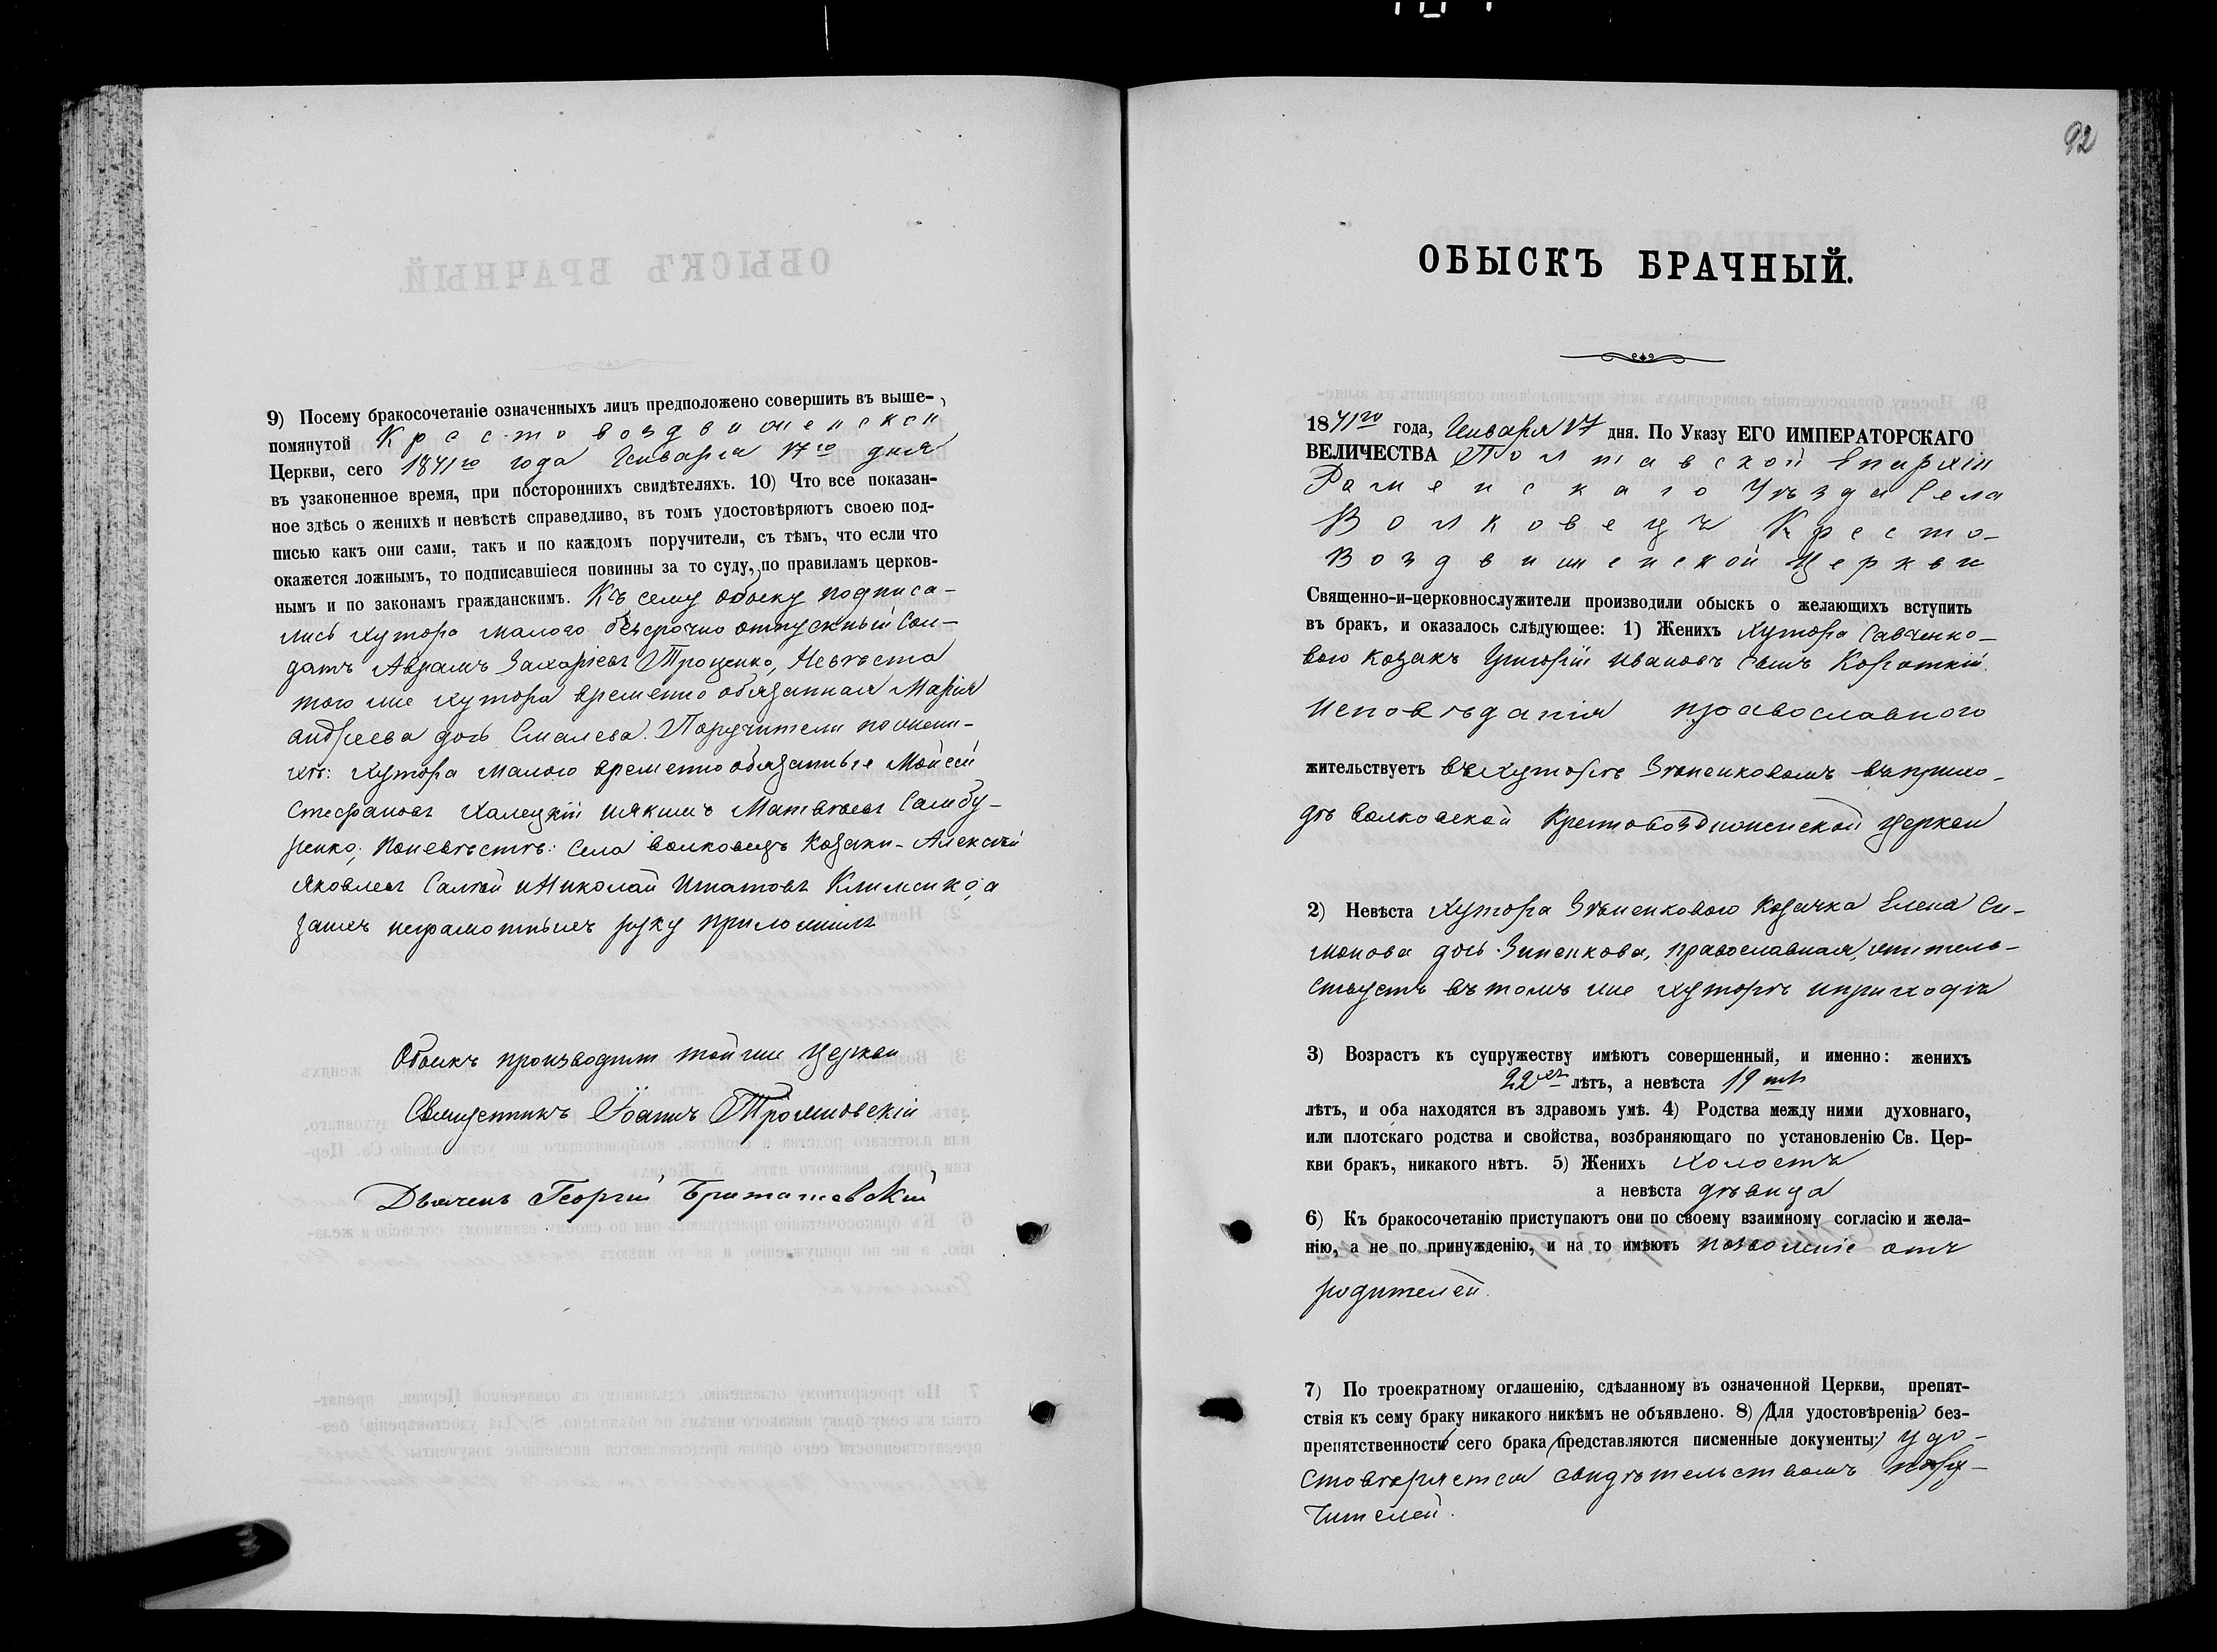 9) Посему бракосочетаніе означенныхъ лицъ предположено совершить въ выше-
помянутой Крестовоздвиженской
Церкви, сего 1871го года Января 17го дня
въ узаконенное время, при постороннихъ свидѣтеляхъ. 10) Что все показан-
ное здѣсь о женихѣ и невѣстѣ справедливо, въ томъ удостовѣряютъ своею под-
писью какъ они сами, такъ и по каждомъ поручители, съ тѣмъ, что если что
окажется ложнымъ, то подписавшіеся повинны за то суду, по правиламъ церков-
нымъ и по законамъ гражданскимъ. Къ сему обыску подписа-
лись хутора Малого безсрочно отпускный Сол-
датъ Аврамъ Захаріевъ Троценко, Невѣста
того же хутора временно обязанная Марія
Андреева дочь Смалева. Поручители по жени-
хѣ: хутора Малого временно обязанные Мойсей
Стефановъ Халецкій и Якимъ Матвѣевъ Самбу-
ренко; По невѣстѣ: Села Волковецъ Козаки - Алексѣй
Яковлевъ Салтѣй и Николай Игнатовъ Клименко, а
за нихъ неграмотныхъ руку приложилъ
Обыскъ производилъ той же Церкви
Священникъ Іоаннъ Троминовскій
Дьячекъ Георгій
92
ОБЫСКЪ БРАЧНЫЙ.
1871го года, Января 17 дня. По Указу ЕГО ИМПЕРАТОРСКАГО
ВЕЛИЧЕСТВА Полтавской Епархіи
Раменскаго Уѣзда Села
Волковецъ Кресто-
Воздвиженской Церкви
Священно-и-церковнослужители производили обыскъ о желающихъ вступить
въ бракъ, и оказалось слѣдующее: 1) Женихъ Хутора Савченко-
вого козакъ Григорій Ивановъ сынъ Короткій.
Исповѣданія православного
жительствуетъ въ Хуторѣ Зѣненковомъ въ прихо-
дѣ Волковской Крестовоздвиженской Церкви
2) Невѣста Хутора Зѣненкового Козачка Елена Си-
монова дочь Зиненкова, православная, житель-
ствуетъ въ томъ же хуторѣ и приходѣ
3) Возрастъ къ супружеству имѣютъ совершенный, и именно: женихъ
22хъ лѣтъ, а невѣста 19ть
лѣтъ, и оба находятся въ здравомъ умѣ. 4) Родства между ними духовнаго,
или плотскаго родства и свойства, возбраняющаго по установленію Св. Цер-
кви бракъ, никакого нѣтъ. 5) Женихъ Холостъ
а невѣста дѣвица
6) Къ бракосочетанію приступаютъ они по своему взаимному согласію и жела-
нію, а не по принужденію, и на то имѣютъ позволеніе отъ
родителей.
7) По троекратному оглашенію, сдѣланному въ означенной Церкви, препят-
ствія къ сему браку никакого никѣмъ не объявлено. 8) Для удостовѣренія без-
препятственности сего брака (представляются писменные документы:) удо-
стовѣряется свидѣтельствомъ пору-
чителей.